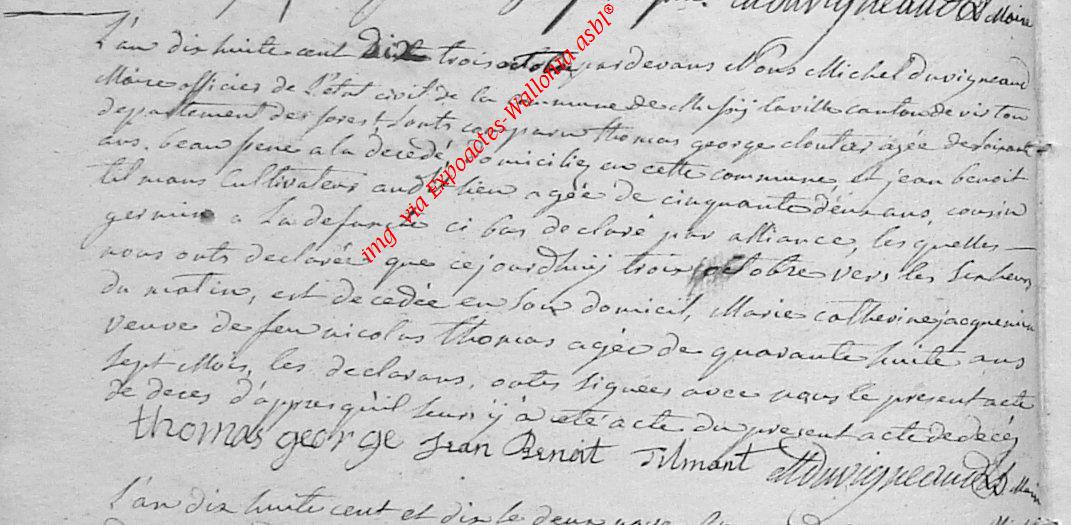 Mduvigneaud Maire
L'an dix huite cent dix trois octobre pardevans Nous Michel Duvigneaud
Maire officier de L'état civil de la Commune de Mussij laville canton de virton
departement des forest sonts comparu thomas george cloutier agée de soixante
ans. beau pere a la décedé, domiciliez en cette commune et jean benoit
tilmans Cultivateur audit lieu agée de cinquante deux ans, cousin
germin a La defuncte ci bas declaré par alliance, les quelles —
nous onts declarée que cejourdhuij trois octobre vers les six heurs
du matin, est decedée en son domicil, Marie catherine jacquemin
veuve de feu nicolas thomas agée de quarante huite ans
sept Mois, les declarans, onts signées avec nous le present acte
de deces d'appres qu'il leurs ij à eté acte du present acte de decés
thomas george Jean Benoit Tilmant Mduvigneaud Maire
L'an dix huite cent et dix le deux
img via Expoactes-Wallonia asbl®